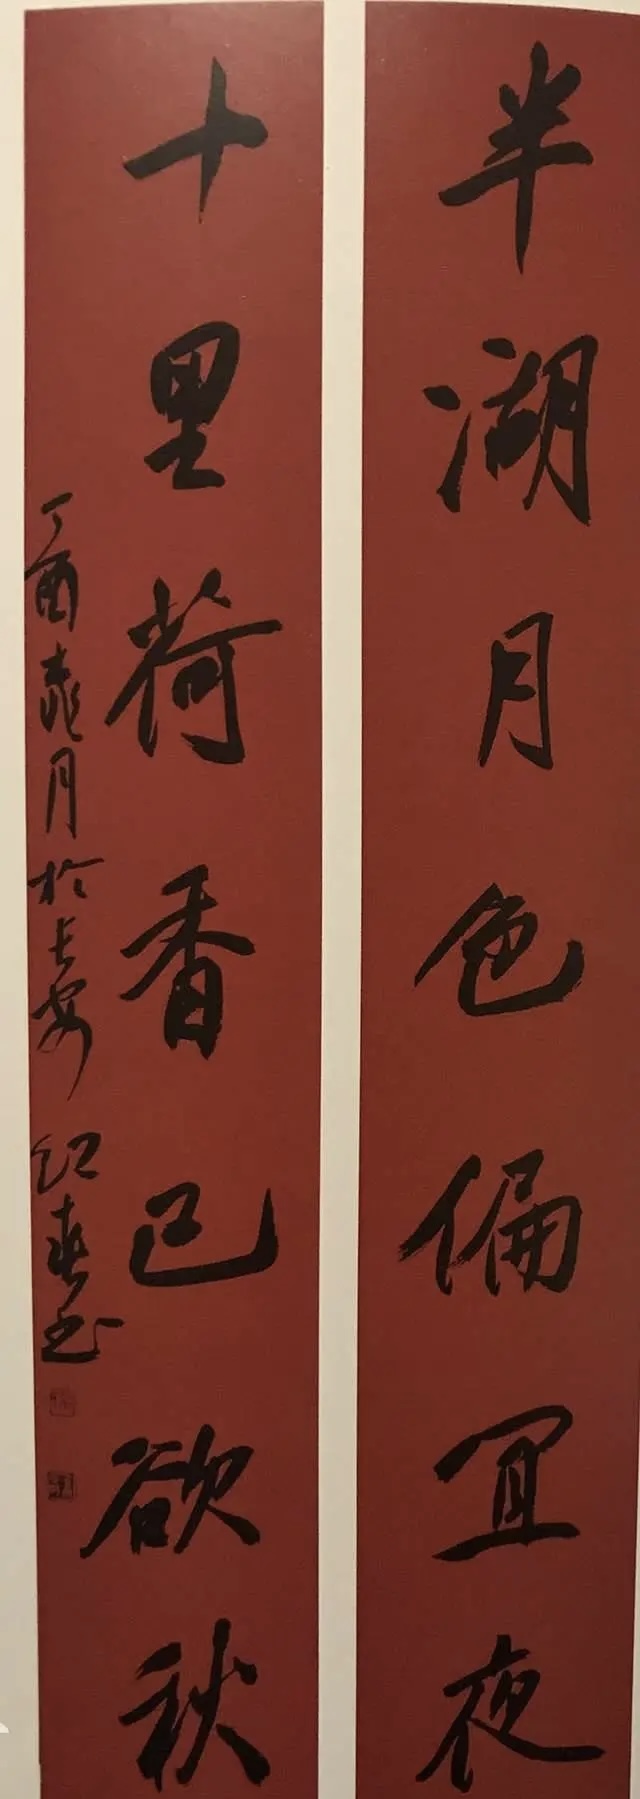 半湖月色偏宜夜
十里荷香已欲秋
丁酉桃月於长安 红春书